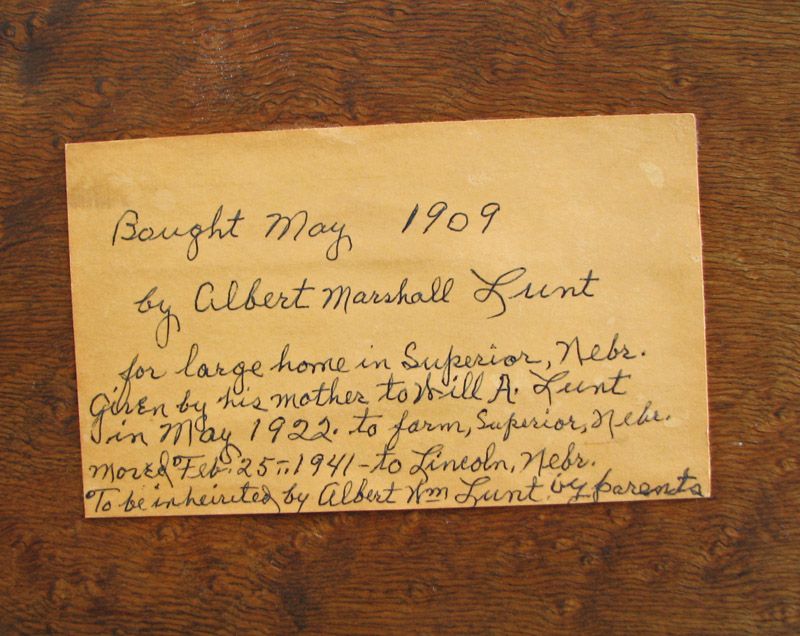 Bought May 1909
by Albert Marshall Lunt
for large home in Superior, Nebr.
Given by his mother to Will A. Lunt
in May 1922. to farm, Superior, Nebr.
Moved Feb. 25-1941-to Lincoln, Nebr.
To be inheirited by Albert Wm Lunt by parents